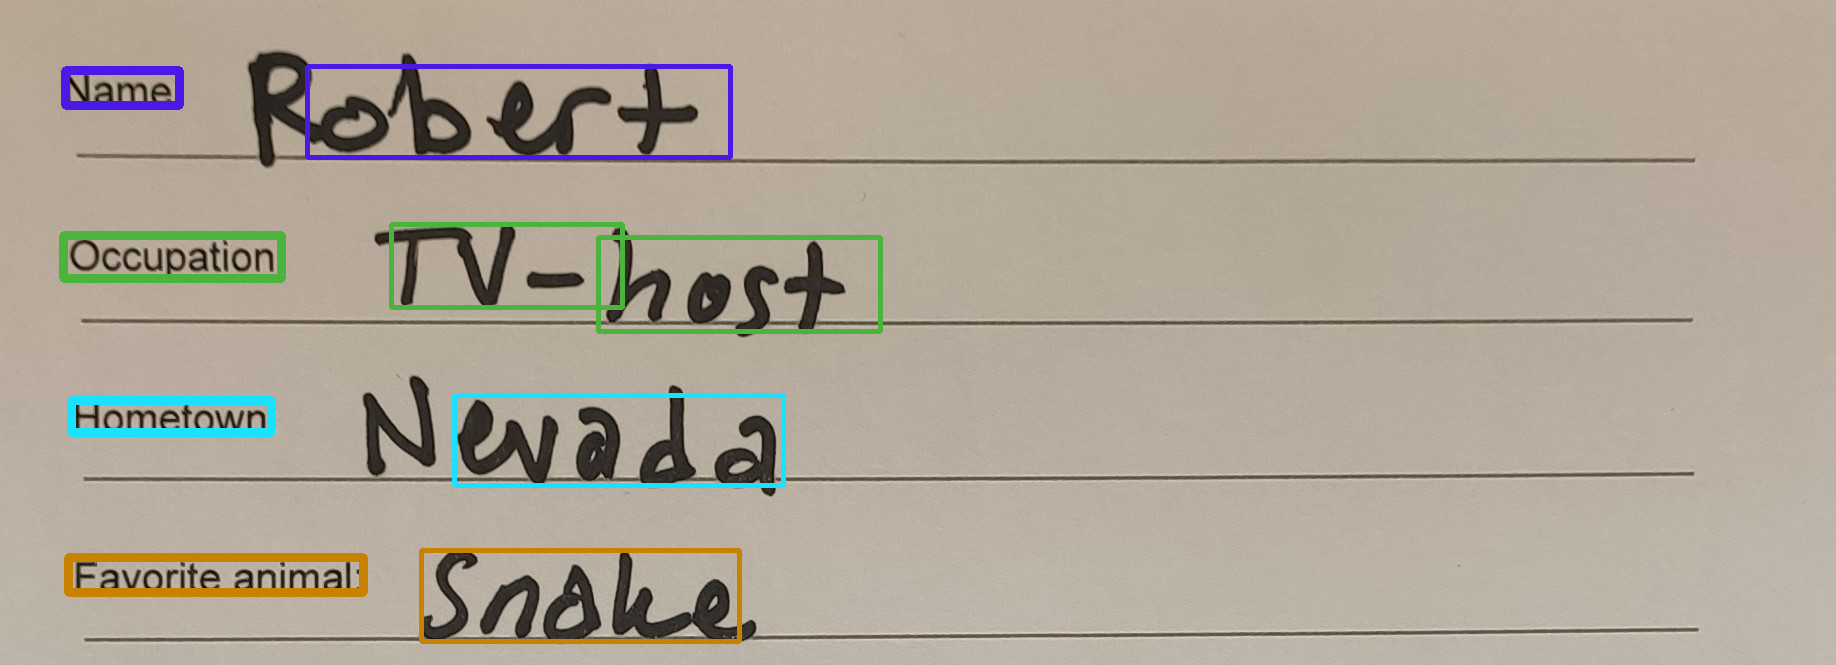 Name Robert
Occupation TV-host
Hometown Nevada
Favorite animal: Snake